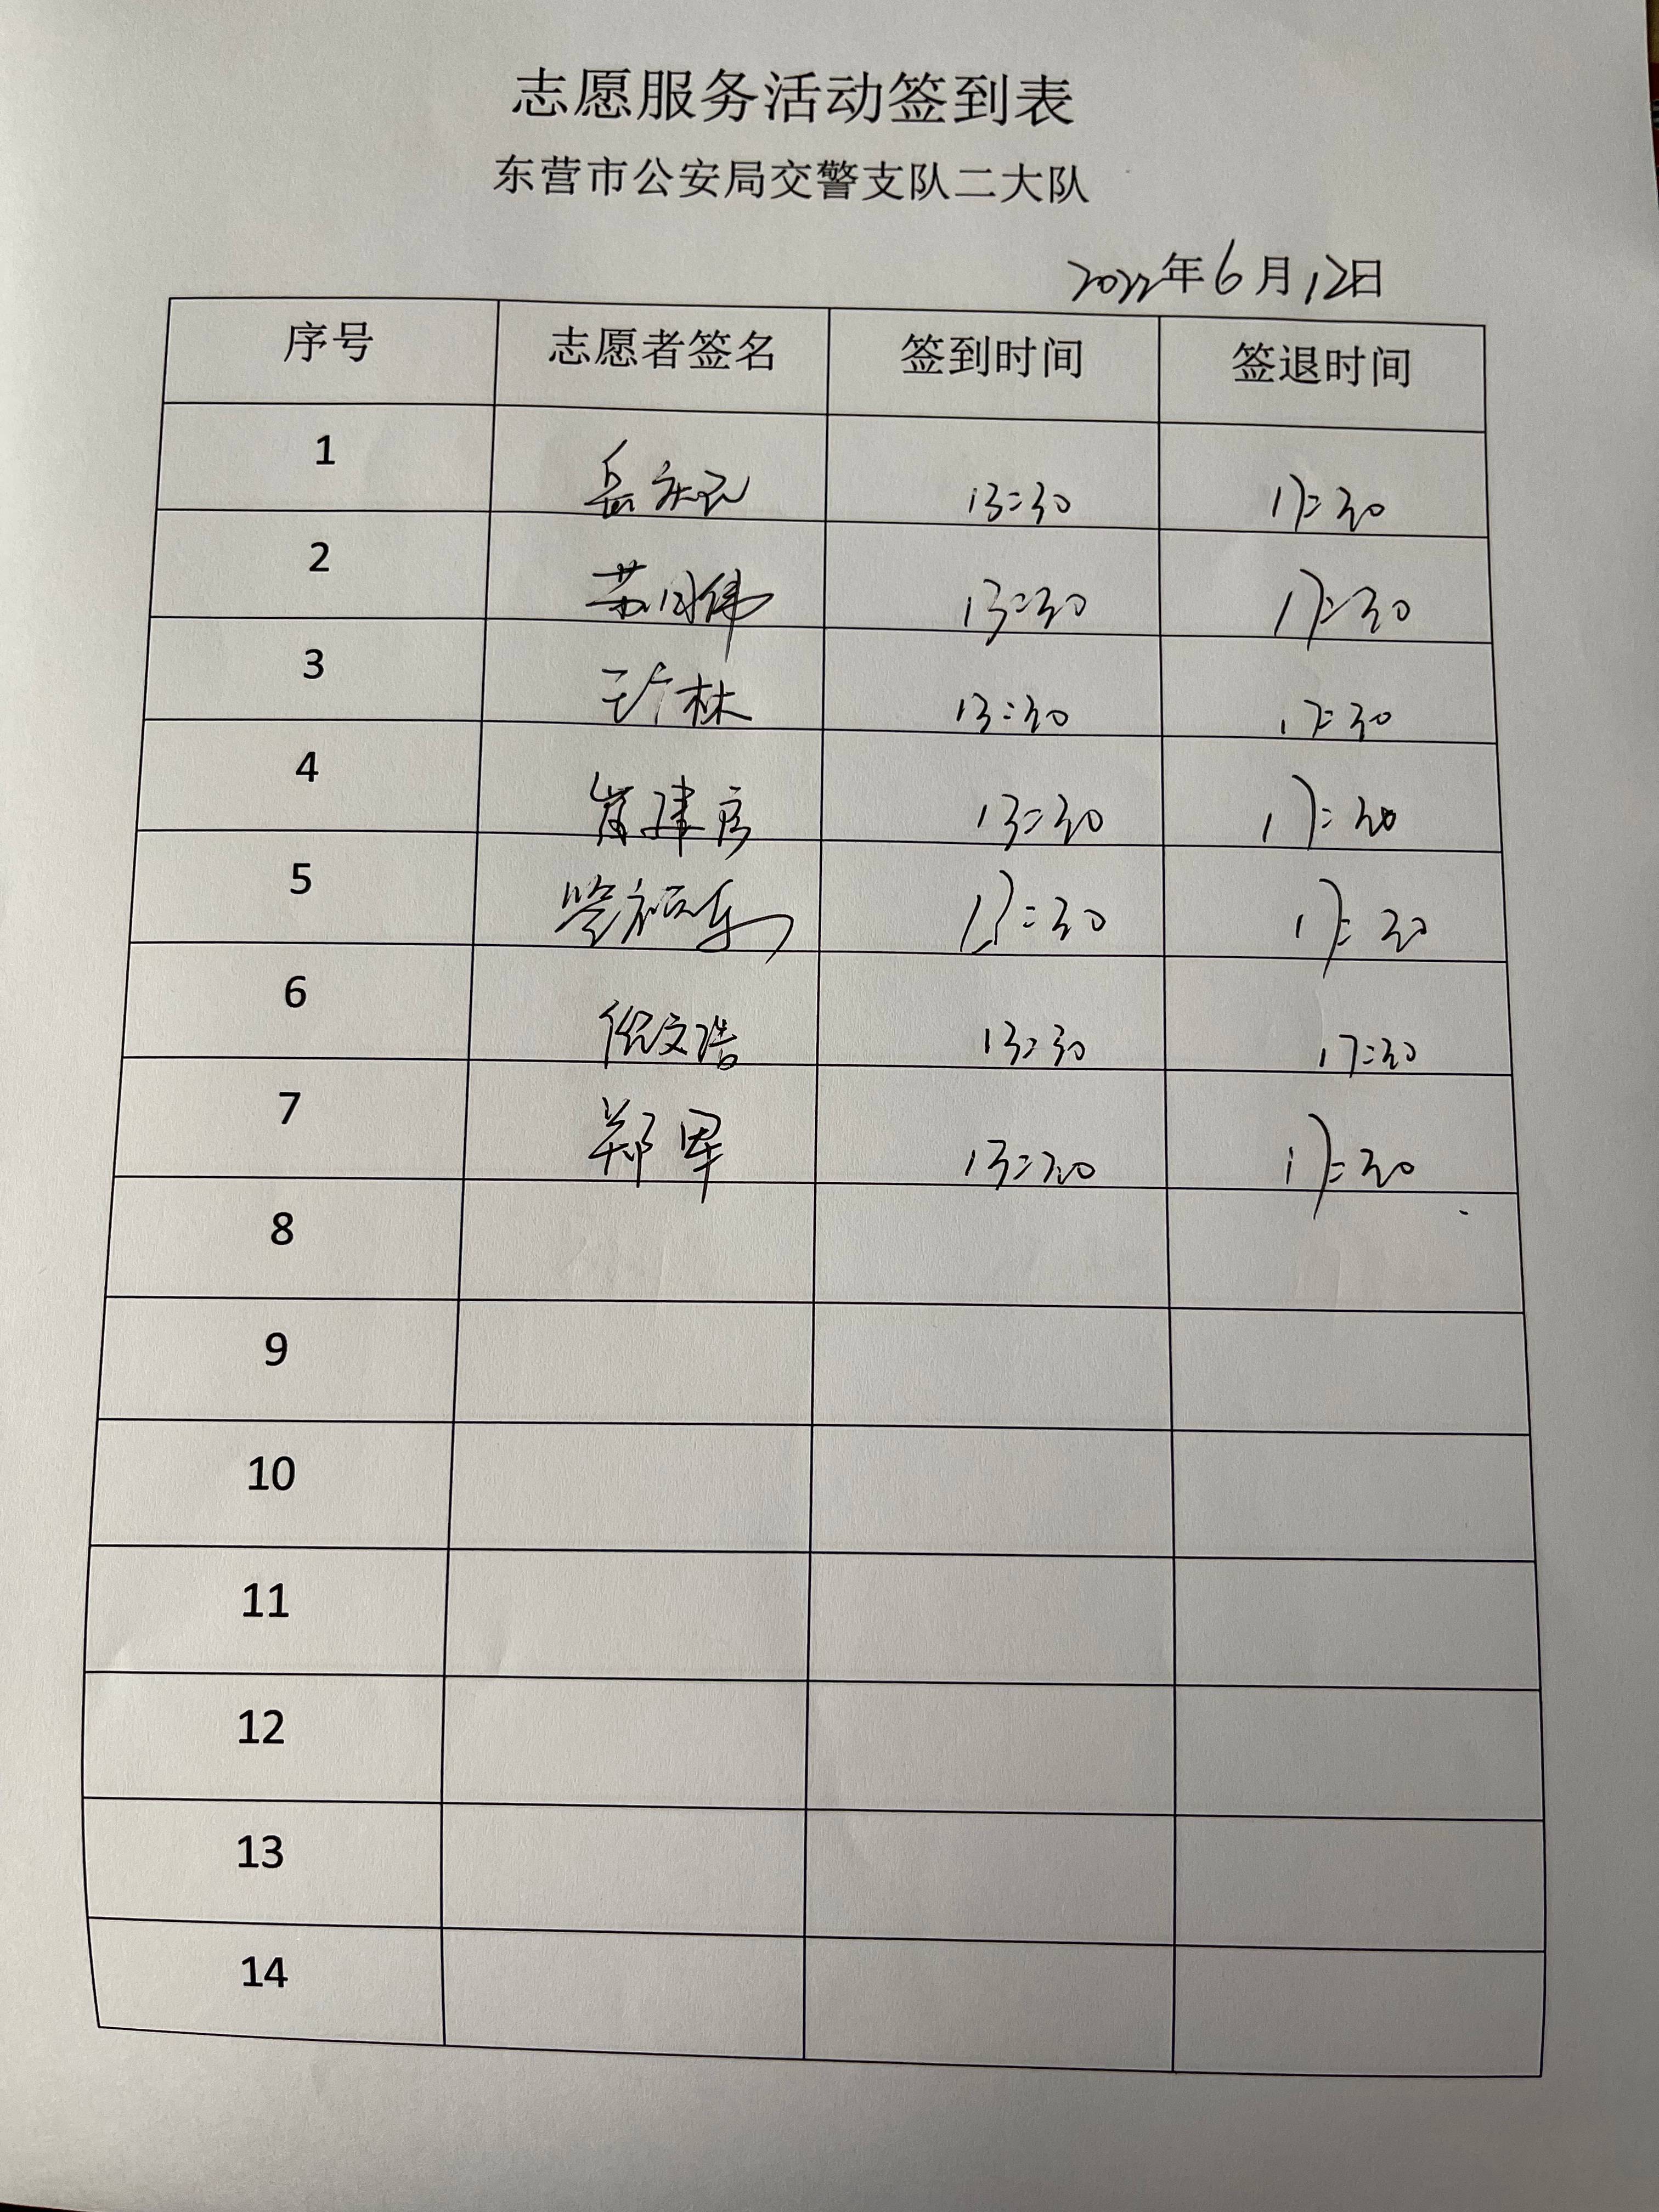 志愿服务活动签到表
东营市公安局交警支队二大队
2022年6月12日
序号 志愿者签名 签到时间 签退时间
1 岳庆 13:30 17:30
2 苏同伟 13:30 17:30
3 王广林 13:30 17:30
4 崔建房 13:30 17:30
5 13:30 17:30
6 倪文浩 13:30 17:30
7 郑军 13:30 17:30
8
9
10
11
12
13
14